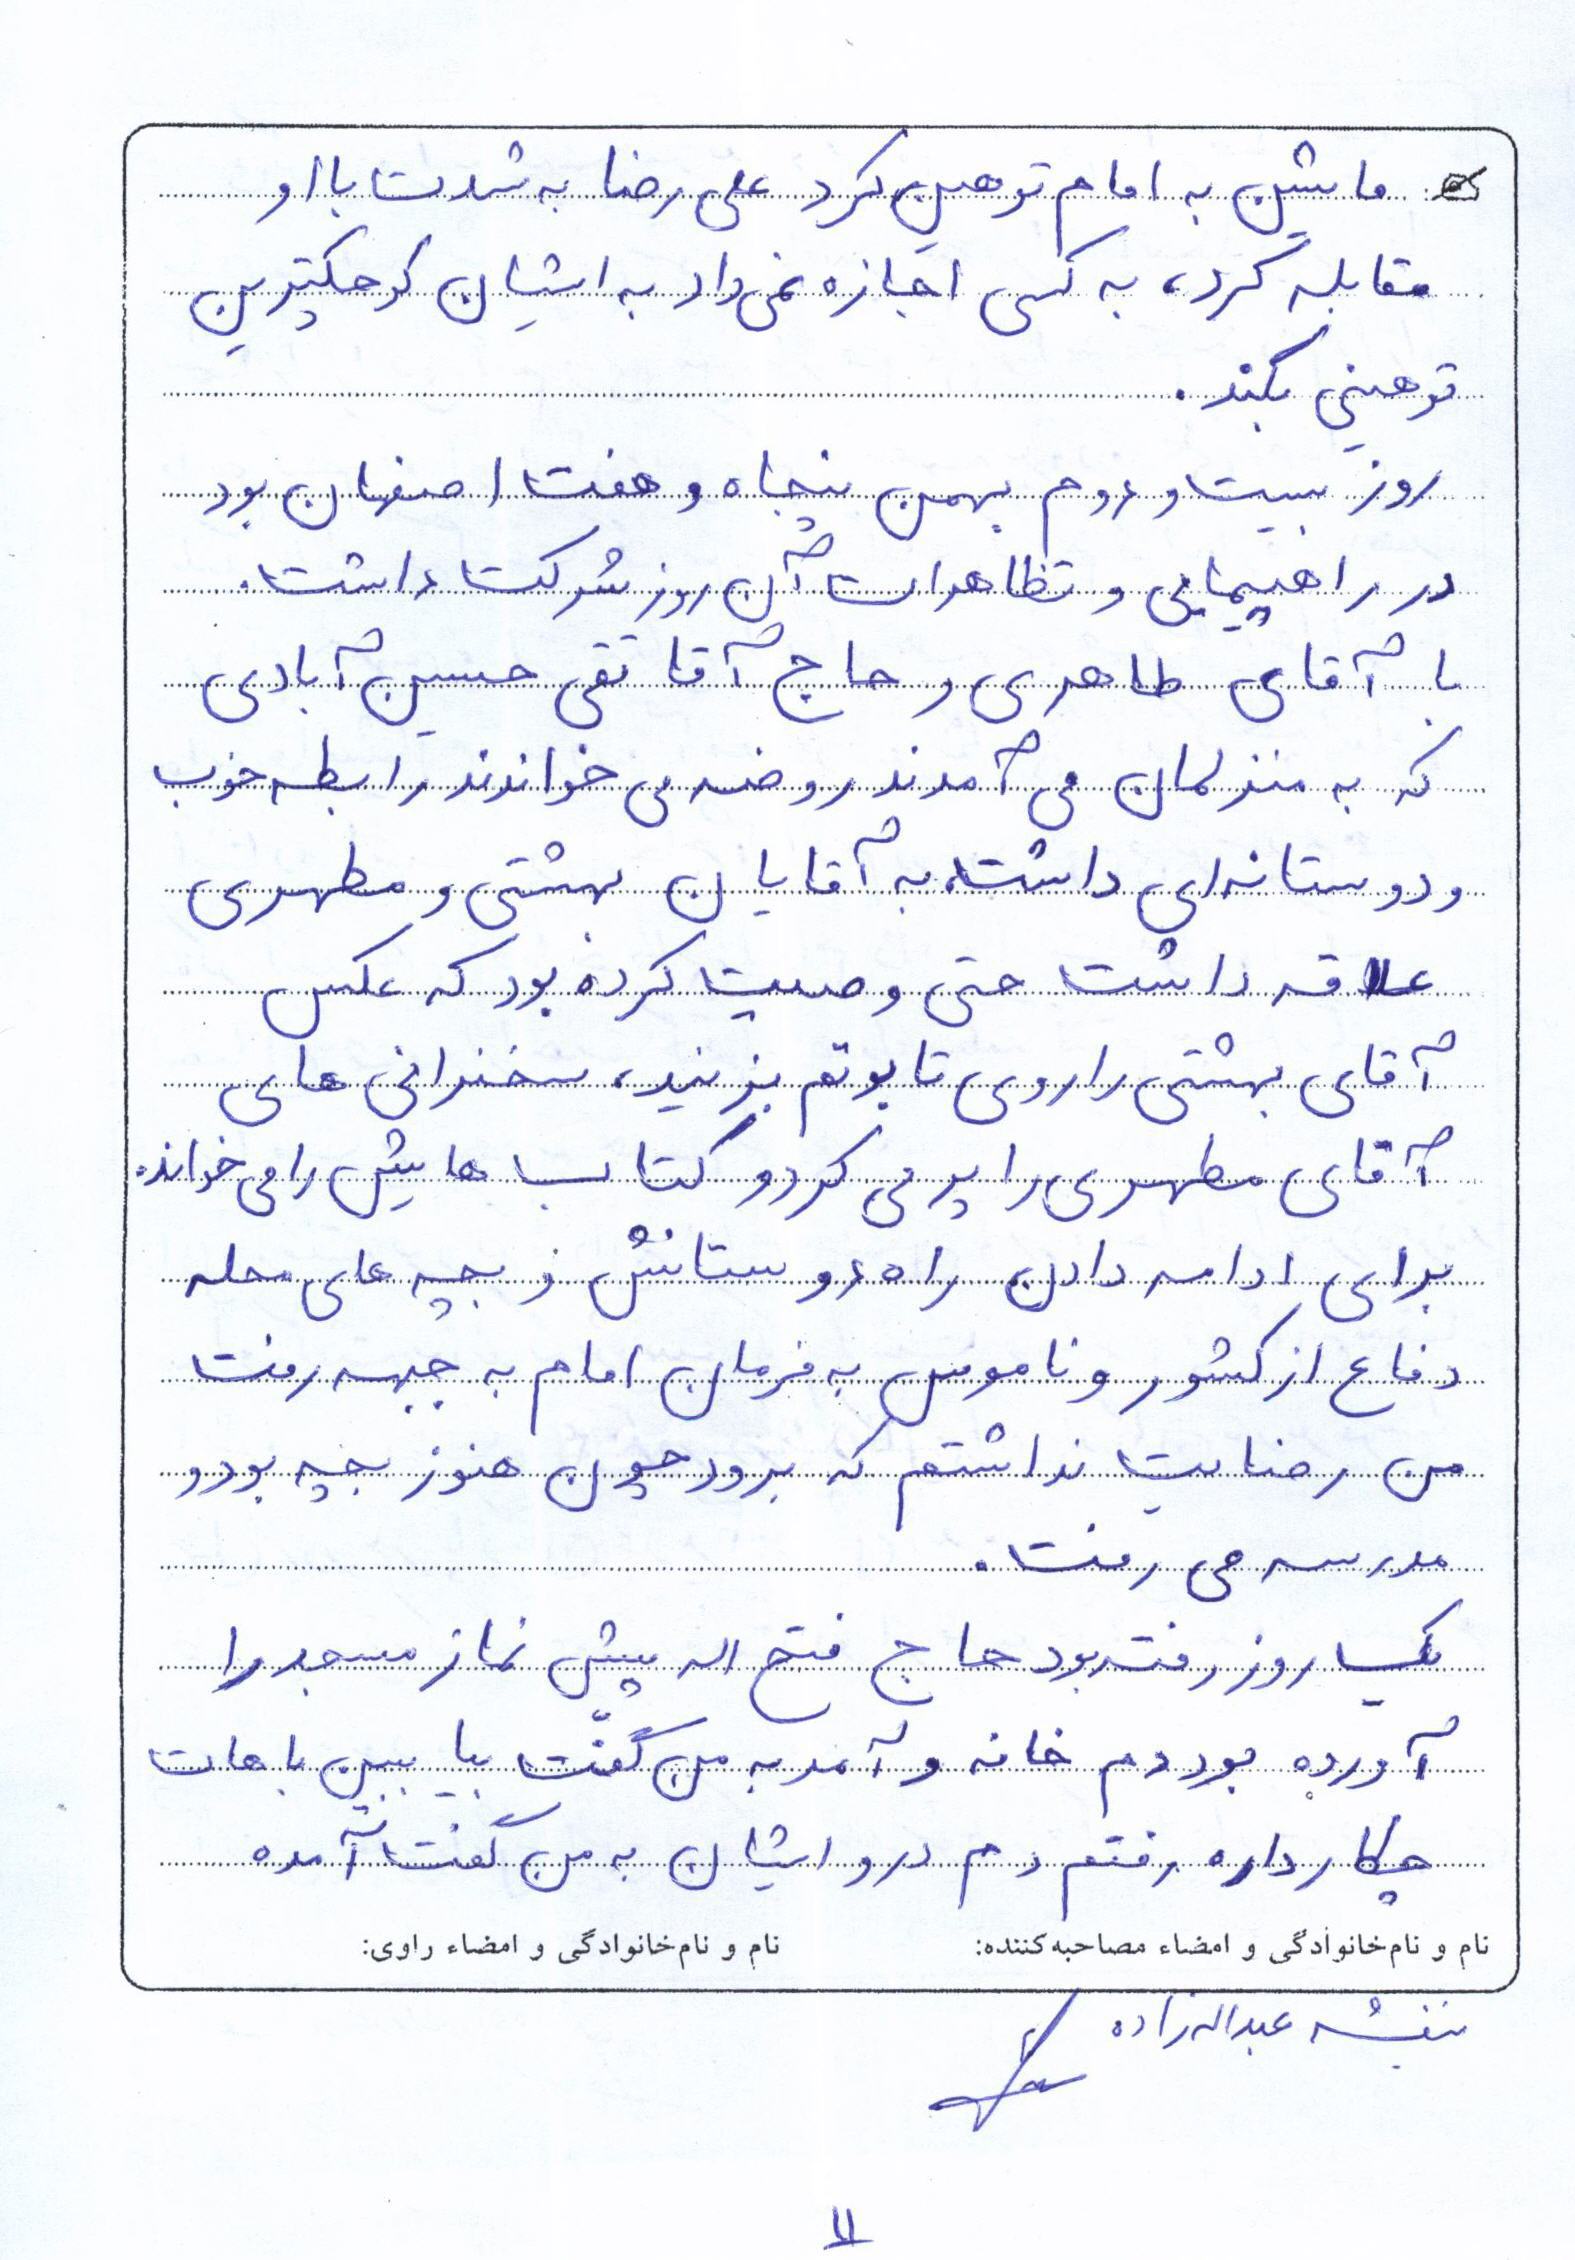 مایش به امام توهین کرد علی رضا به شدت با او
مقابله کرد، به کسی اجازه نمی داد به ایشان کوچکترین
توهینی بکند.
روز بیست و دوم بهمن پنجاه و هفت اصفهان بود
در راهپیمایی و تظاهرات آن روز شرکت داشت.
با آقای طاهری و حاج آقا تقی حسین آبادی
که به منزلمان می آمدند روضه می خواندند رابطه خوب
و دوستانه ای داشت. به آقایان بهشتی و مطهری
علاقه داشت حتی وصیت کرده بود که عکس
آقای بهشتی را روی تابوتم بزنید، سخنرانی های
آقای مطهری را پر می کرد و کتاب هایش را می خواند.
برای ادامه دادن راه دوستانش و بچه های محله
دفاع از کشور و ناموس به فرمان امام به جبهه رفت
من رضایت نداشتم که برود چون هنوز بچه بود و
مدرسه می رفت.
یک روز رفته بود حاج فتح اله پیش نماز مسجد را
آورده بود دم خانه و آمد به من گفت بیا ببین باهات
چکار داره رفتم دم در و ایشان به من گفت آمده
نام و نام‌خانوادگی و امضاء مصاحبه‌کننده: نام و نام‌خانوادگی و امضاء راوی:
بنفشه عبداله زاده